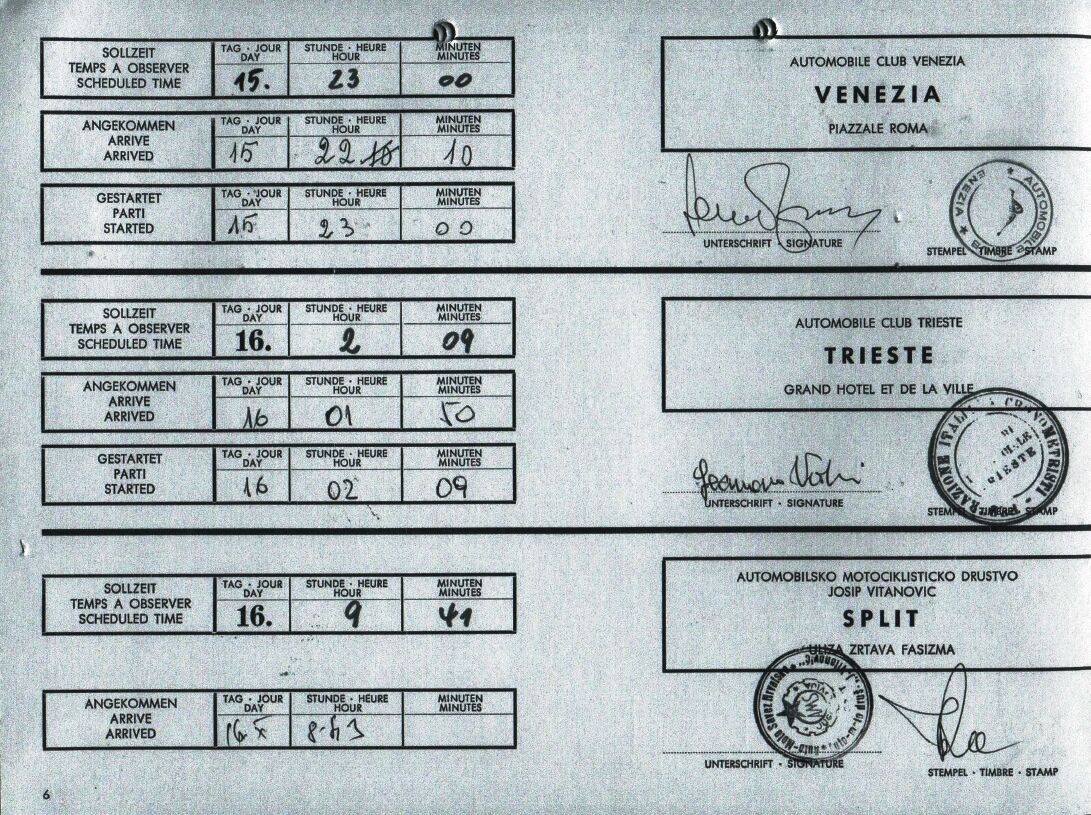 SOLLZEIT
TEMPS A OBSERVER
SCHEDULED TIME
TAG · JOUR
DAY
15.
STUNDE · HEURE
HOUR
23
MINUTEN
MINUTES
00
AUTOMOBILE CLUB VENEZIA
VENEZIA
PIAZZALE ROMA
ANGEKOMMEN
ARRIVE
ARRIVED
TAG · JOUR
DAY
15
STUNDE · HEURE
HOUR
22
MINUTEN
MINUTES
10
GESTARTET
PARTI
STARTED
TAG · JOUR
DAY
15
STUNDE · HEURE
HOUR
23
MINUTEN
MINUTES
00
UNTERSCHRIFT · SIGNATURE
STEMPEL · TIMBRE · STAMP
SOLLZEIT
TEMPS A OBSERVER
SCHEDULED TIME
TAG · JOUR
DAY
16.
STUNDE · HEURE
HOUR
2
MINUTEN
MINUTES
09
AUTOMOBILE CLUB TRIESTE
TRIESTE
GRAND HOTEL ET DE LA VILLE
ANGEKOMMEN
ARRIVE
ARRIVED
TAG · JOUR
DAY
16
STUNDE · HEURE
HOUR
01
MINUTEN
MINUTES
50
GESTARTET
PARTI
STARTED
TAG · JOUR
DAY
16
STUNDE · HEURE
HOUR
02
MINUTEN
MINUTES
09
UNTERSCHRIFT · SIGNATURE
STEMPEL · TIMBRE · STAMP
SOLLZEIT
TEMPS A OBSERVER
SCHEDULED TIME
TAG · JOUR
DAY
16.
STUNDE · HEURE
HOUR
9
MINUTEN
MINUTES
41
AUTOMOBILSKO MOTOCIKLISTICKO DRUSTVO
JOSIP VITANOVIC
SPLIT
ULIZA ZRTAVA FASIZMA
ANGEKOMMEN
ARRIVE
ARRIVED
TAG · JOUR
DAY
STUNDE · HEURE
HOUR
MINUTEN
MINUTES
UNTERSCHRIFT · SIGNATURE
STEMPEL · TIMBRE · STAMP
6